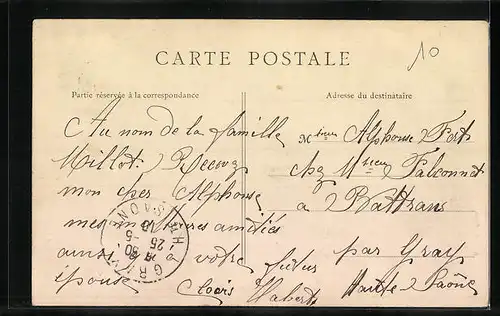 10
CARTE POSTALE
Partie réservée à la correspondance
Adresse du destinataire
Au nom de la famille
Millot. Recevez
mon cher Alphonse
mes meilleures amitiés
ainsi à votre future
épouse Clovis Habert
Mr Alphonse Fort
chez Mr Falconnet
à Battrans
par Gray
Haute-Saône
GRAY
Hte SAONE